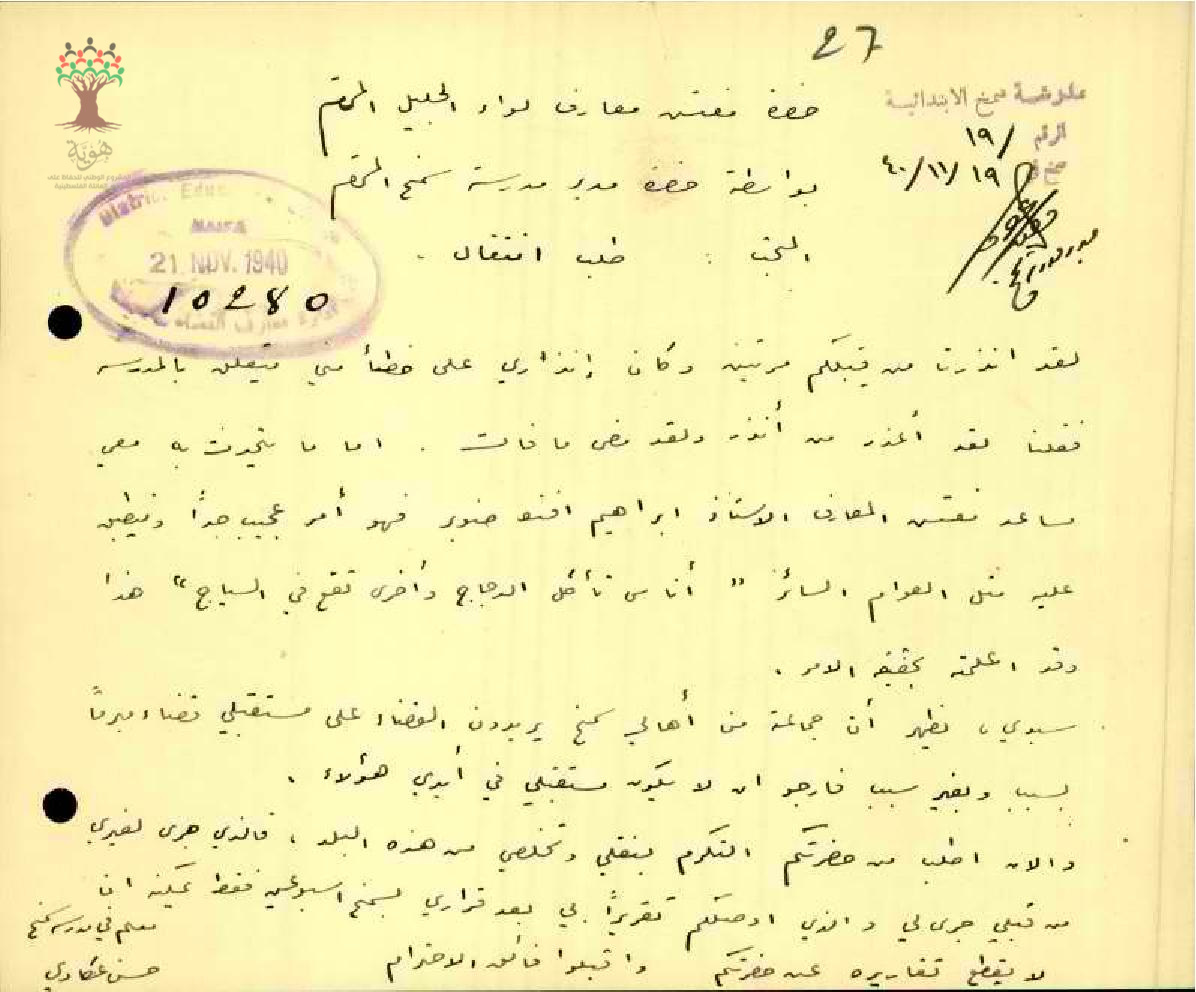 27
هوية
المشروع الوطني للحفاظ على
العائلة الفلسطينية
مدرسة سمخ الابتدائية
الرقم /١٩
سمخ في ٤٠/١١/١٩
District Edu
HAIFA
21 NOV. 1940
10280
حضرة مفتش معارف لواء الجليل المحترم
بواسطة حضرة مدير مدرسة سمخ المحترم
المبحث : طلب انتقال .
لقد انذرت من قبلكم مرتين وكان إنذاري على خطأ مني متعلق بالمدرسه
فقلنا لقد أعذر من أنذر ولقد مضى ما فات . اما ما يتحدث به معي
مساعد مفتش المعارف الاستاذ ابراهيم افندي صنوبر فهو أمر عجيب جداً وينطبق
عليه مثل العوام السائر " أناس تأكل الدجاج وأخرى تقع في السياج " هذا
وقد اعلمته بحقيقة الامر .
سيدي ، يظهر أن جماعة من أهالي سمخ يريدون القضاء على مستقبلي قضاء مبرماً
بسبب وبغير سبب فارجو ان لا يكون مستقبلي في أيدي هؤلاء .
والان اطلب من حضرتكم التكرم بنقلي وتخلصي من هذه البلد ، فالذي جرى لغيري
من قبلي جرى لي والذي اوصلكم تقريراً بي بعد قراري بسمخ اسبوعين فقط يمكنه ان
لا يقطع تقاريره عن حضرتكم واقبلوا فائق الاحترام
معلم في مدرسة سمخ
حسن عكاوي